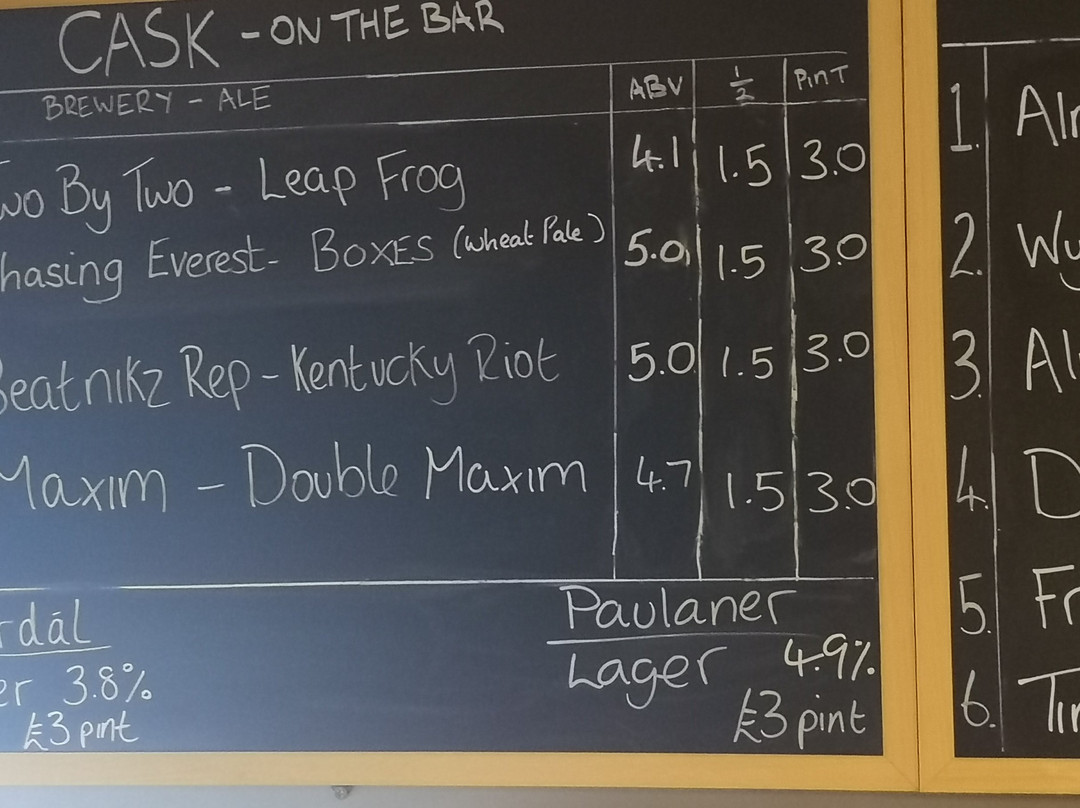 CASK - ON THE BAR
BREWERY - ALE ABV ½ PINT
By Two - Leap Frog 4.1 1.5 3.0
Everest - BOXES (Wheat Pale) 5.0 1.5 3.0
Rep - Kentucky Riot 5.0 1.5 3.0
Maxim - Double Maxim 4.7 1.5 3.0
3.8%
£3 pint
Paulaner
Lager 4.9%
£3 pint
1.
2.
3.
4.
5.
6.